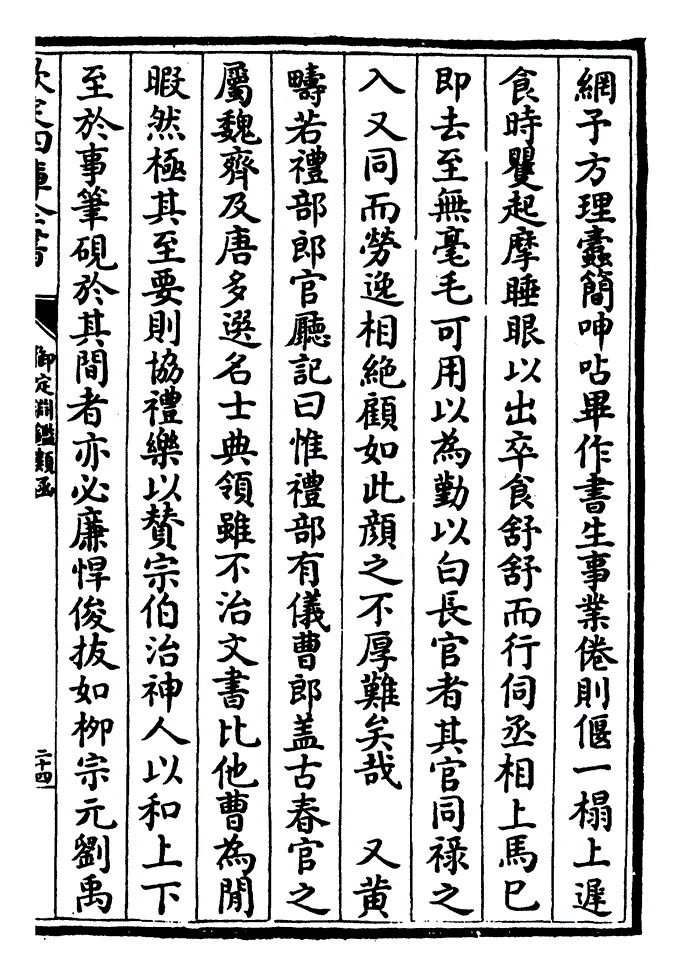 網予方理蠧簡呻呫畢作書生事業倦則偃一榻上遲
食時矍起摩睡眼以出卒食舒舒而行伺丞相上馬已
即去至無毫毛可用以為勤以白長官者其官同禄之
入又同而勞逸相絶顧如此顔之不厚難矣哉　又黄
疇若禮部郎官廳記曰惟禮部有儀曹郎盖古春官之
屬魏齊及唐多選名士典領雖不治文書比他曹為閒
暇然極其至要則協禮樂以賛宗伯治神人以和上下
至於事筆硯於其間者亦必廉悍俊拔如柳宗元劉禹
欽定四庫全書
御定淵鑑類函
二十四